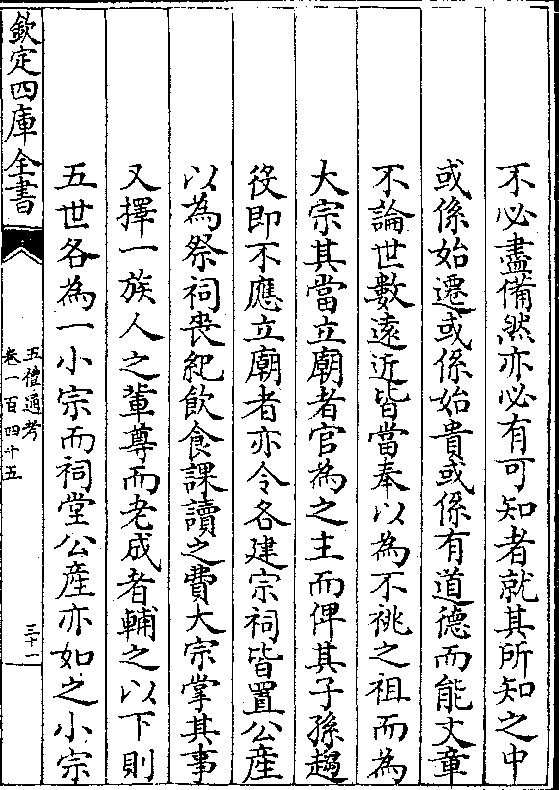 不必盡備然亦必有可知者就其所知之中
或係始遷或係始貴或係有道德而能文章
不論世數遠近皆當奉以為不祧之祖而為
大宗其當立廟者官為之主而俾其子孫趨
役即不應立廟者亦令各建宗祠皆置公產
以為祭祠喪紀飲食課讀之費大宗掌其事
又擇一族人之軰尊而老成者輔之以下則
五世各為一小宗而祠堂公產亦如之小宗
欽定四庫全書
五禮通考
卷一百四十五
三十一